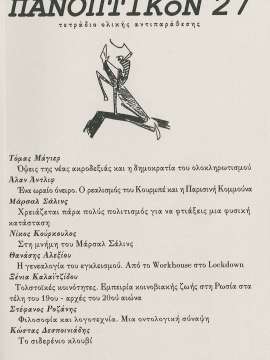 ΠΑΝΟΠΤΙΚόΝ 27
τετράδιο ολικής αντιπαράθεσης
Τόμας Μάγιερ
Όψεις της νέας ακροδεξιάς και η δημοκρατία του ολοκληρωτισμού
Άλαν Άντλιφ
Ένα ωραίο όνειρο. Ο ρεαλισμός του Κουρμπέ και η Παρισινή Κομμούνα
Μάρσαλ Σάλινς
Χρειάζεται πάρα πολύς πολιτισμός για να φτιάξεις μια φυσική
κατάσταση
Νίκος Κούρκουλος
Στη μνήμη του Μάρσαλ Σάλινς
Θανάσης Αλεξίου
Η γενεαλογία του εγκλεισμού. Από το Workhouse στο Lockdown
Ξένια Καλαϊτζίδου
Τολστοϊκές κοινότητες. Εμπειρία κοινοβιακής ζωής στη Ρωσία στα
τέλη του 19ου - αρχές του 20ού αιώνα
Στέφανος Ροζάνης
Φιλοσοφία και λογοτεχνία. Μια οντολογική σύναψη
Κώστας Δεσποινιάδης
Το σιδερένιο κλουβί